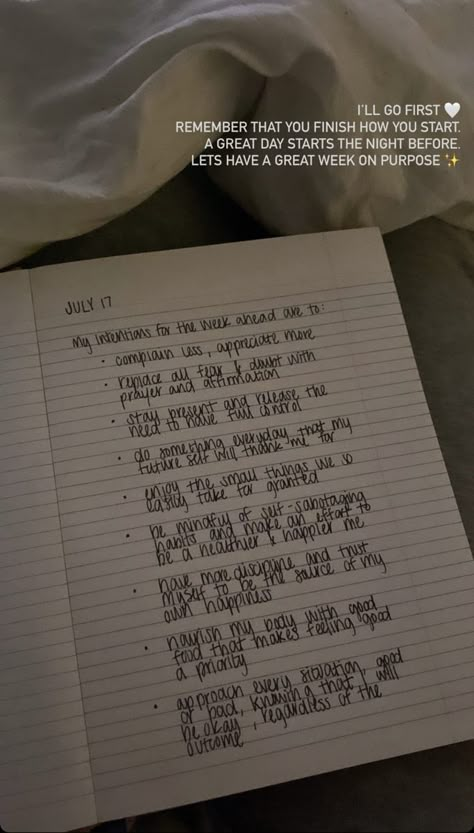 I'LL GO FIRST 🤍
REMEMBER THAT YOU FINISH HOW YOU START.
A GREAT DAY STARTS THE NIGHT BEFORE.
LETS HAVE A GREAT WEEK ON PURPOSE ✨
JULY 17
My intentions for the week ahead are to:
• complain less, appreciate more
• replace all fear & doubt with
prayer and affirmation
• stay present and release the
need to have full control
• do something everyday that my
future self will thank me for
• enjoy the small things we so
easily take for granted
• be mindful of self-sabotaging
habits and make an effort to
be a healthier & happier me
• have more discipline and trust
myself to be the source of my
own happiness
• nourish my body with good
food that makes feeling good
a priority
• approach every situation, good
or bad, knowing that I will
be okay, regardless of the
outcome